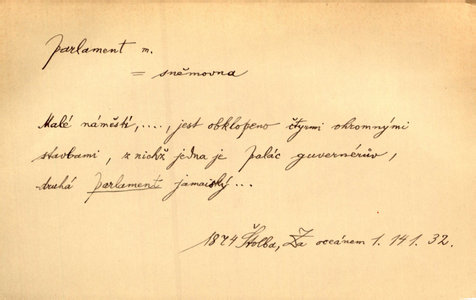 parlament m.
= sněmovna
Malé náměstí, ...., jest obklopeno čtyrmi ohromnými
stavbami, z nichž jedna je palác guvernérův,
druhá parlament jamaiský ...
1874 Štolba, Za oceánem 1. 141. 32.